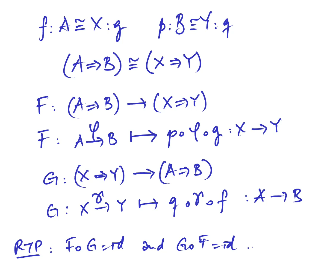 f: A ≅ X : g    p: B ≅ Y : q
(A ⇒ B) ≅ (X ⇒ Y)
F: (A ⇒ B) → (X ⇒ Y)
F: A –φ→ B ↦ p∘φ∘g : X → Y
G: (X ⇒ Y) → (A ⇒ B)
G: X –γ→ Y ↦ q∘γ∘f : A → B
RTP: F∘G = id and G∘F = id ..